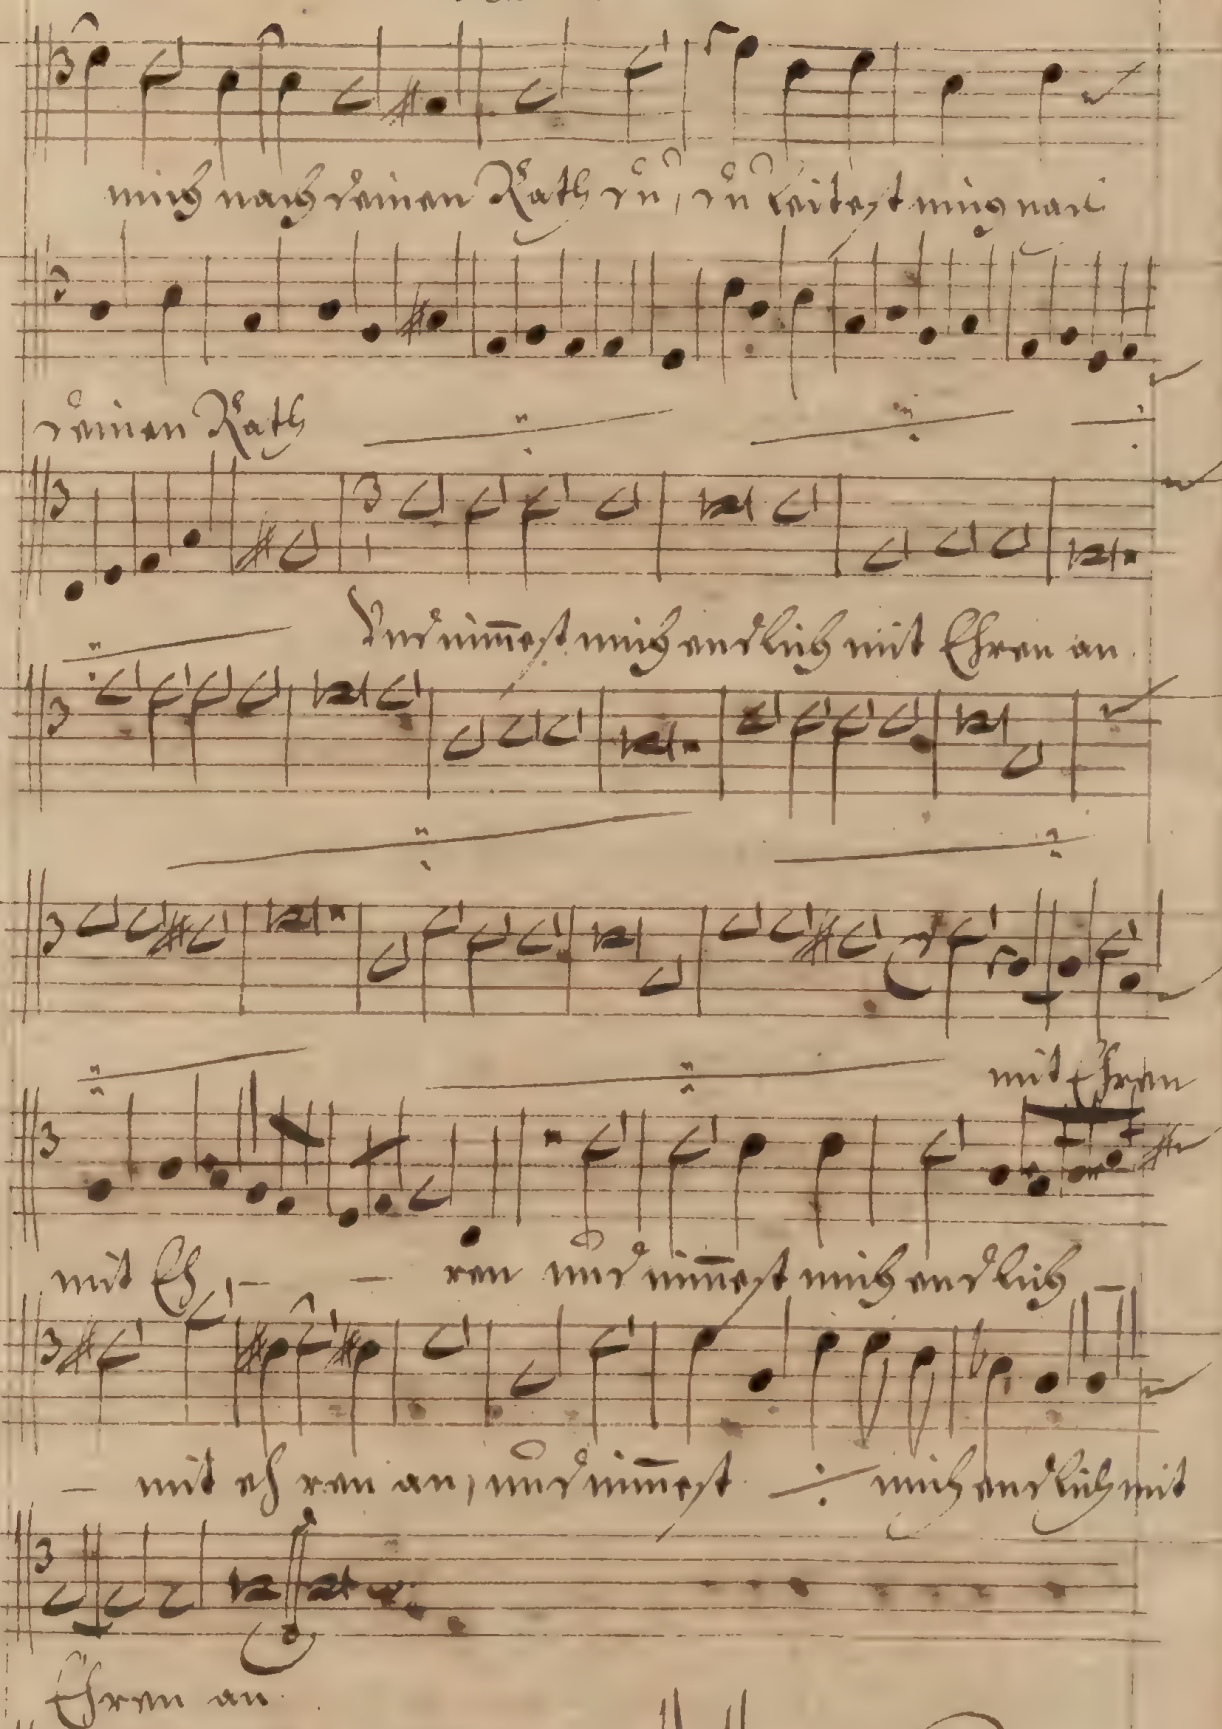 mich nach deinen Rath du, du leitest mich nach
deinen Rath
Und nim̄est mich endlich mit Ehren an.
mit Ehren
mit Eh - - ren und nim̄est mich endlich -
- mit eh ren an, und nim̄est ∙/∙ mich endlich mit
Ehren an.